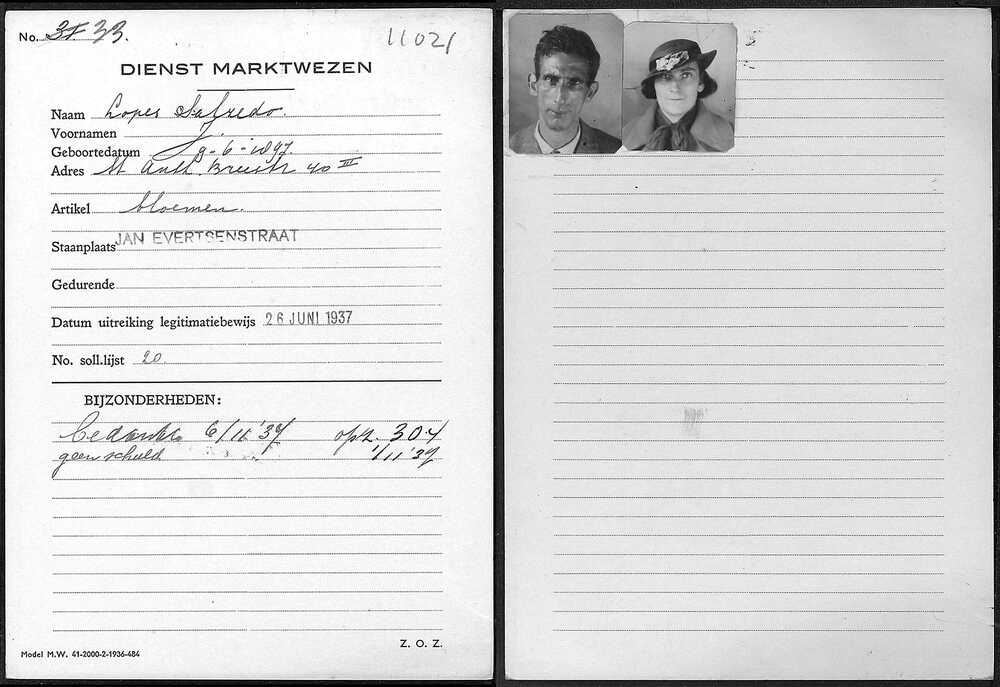 No. 3733.
11021
DIENST MARKTWEZEN
Naam Lopes Salzedo.
Voornamen J.
Geboortedatum 9-6-1897.
Adres St Anth. Breestr 40 III
Artikel bloemen.
Staanplaats JAN EVERTSENSTRAAT
Gedurende
Datum uitreiking legitimatiebewijs 26 JUNI 1937
No. soll.lijst 20.
BIJZONDERHEDEN:
Bedankt 6/11 '37 opz. 304
geen schuld 1/11 '37
Z. O. Z.
Model M.W. 41-2000-2-1936-484